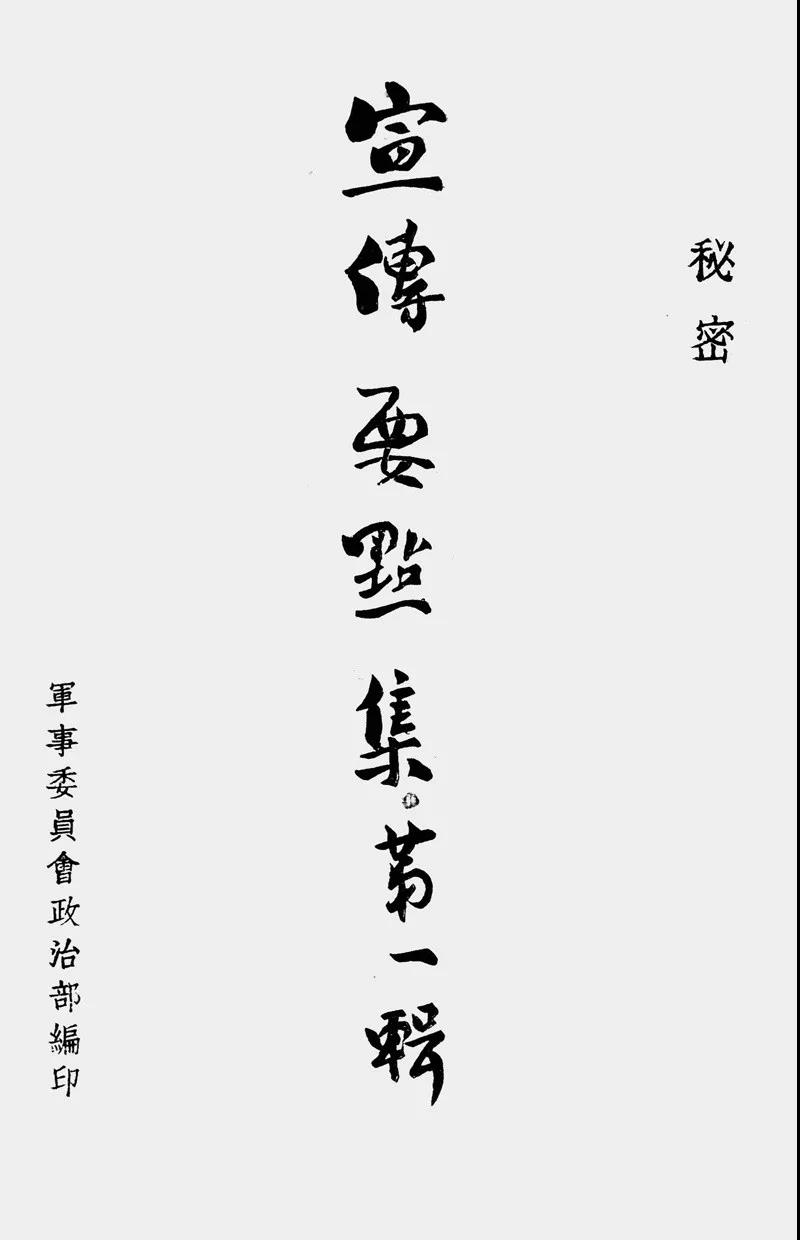 秘密
宣傳要點集第一輯
軍事委員會政治部編印